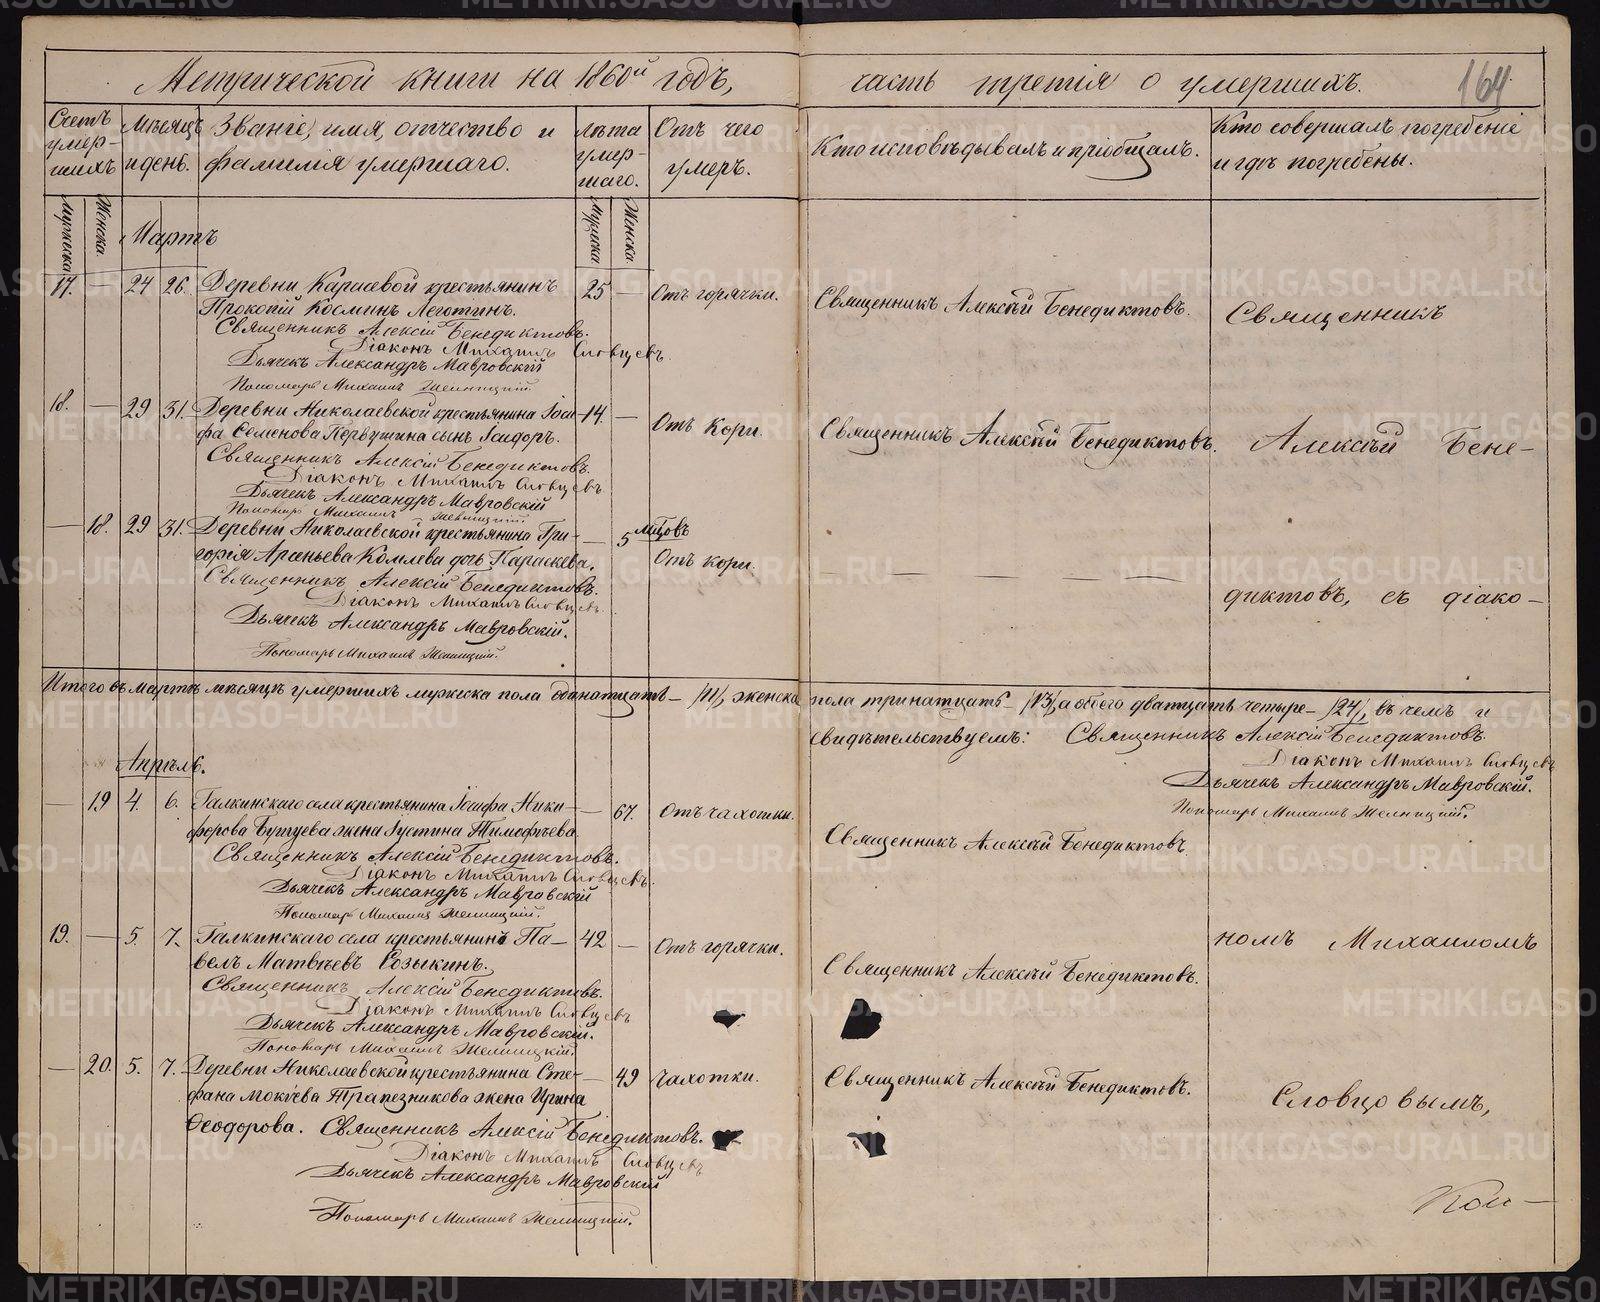 Метрической книги на 1860й годъ, часть третія о умершихъ. 164
Счетъ умер-шихъ
Мѣсяцъ и день.
Званіе, имя, отчество и фамилія умершаго.
Лѣта умер-шаго.
Отъ чего умеръ.
Кто исповѣдывалъ и пріобщалъ.
Кто совершалъ погребеніе и гдѣ погребены.
Мужеска Женска Мартъ Мужеска Женска.
17. — 24 26. Деревни Карасевой крестьянинъ 25 — Отъ горячки. Священникъ Алексѣй Бенедиктовъ. Священникъ
Прокопій Косминъ Леготинъ.
Священникъ Алексій Бенедиктовъ.
Діаконъ Михаилъ Словцевъ.
Дьячекъ Александръ Мавровскій
Пономарь Михаилъ
18. — 29 31. Деревни Николаевской крестьянина Іоси- 14. — Отъ Кори. Священникъ Алексѣй Бенедиктовъ. Алексѣй Бене-
фа Семенова Первушина сынъ Ісидоръ.
Священникъ Алексій Бенедиктовъ.
Діаконъ Михаилъ Словцевъ
Дьячекъ Александръ Мавровскій
Пономарь Михаилъ
— 18. 29 31. Деревни Николаевской крестьянина Гри- — 5 мѣсцовъ
горія Арсеньева Комлева дочь Параскева. Отъ кори. — диктовъ, съ діако-
Священникъ Алексій Бенедиктовъ.
Діаконъ Михаилъ Словцевъ.
Дьячекъ Александръ Мавровскій.
Пономарь Михаилъ
Итого въ мартѣ мѣсяцѣ умершихъ мужеска пола одинатцать — /11/, женска пола тринатцать — /13/, а обоего дватцать четыре — /24/, въ чемъ и
свидѣтельствуемъ: Священникъ Алексій Бенедиктовъ.
Діаконъ Михаилъ Словцевъ
Дьячекъ Александръ Мавровскій.
Пономарь Михаилъ
Апрѣль.
— 19 4. 6. Галкинскаго села крестьянина Іосифа Ники- — 67. Отъ чахотки. Священникъ Алексѣй Бенедиктовъ
форова Бугуева жена Іустина Тимофѣева
Священникъ Алексій Бенедиктовъ.
Діаконъ Михаилъ Словцевъ.
Дьячекъ Александръ Мавровскій
Пономарь Михаилъ
19. — 5. 7. Галкинскаго села крестьянинъ Па- 42 — Отъ горячки. Священникъ Алексѣй Бенедиктовъ. номъ Михаиломъ
велъ Матвѣевъ Розыкинъ.
Священникъ Алексій Бенедиктовъ.
Діаконъ Михаилъ Словцевъ
Дьячекъ Александръ Мавровскій.
Пономарь Михаилъ
— 20. 5. 7. Деревни Николаевской крестьянина Сте- — 49 Чахотки. Священникъ Алексѣй Бенедиктовъ. Словцовымъ,
фана Мокѣева Трапезникова жена Ирина
Ѳеодорова. Священникъ Алексій Бенедиктовъ.
Діаконъ Михаилъ Словцевъ
Дьячекъ Александръ Мавровскій
Пономарь Михаилъ
METRIKI.GASO-URAL.RU